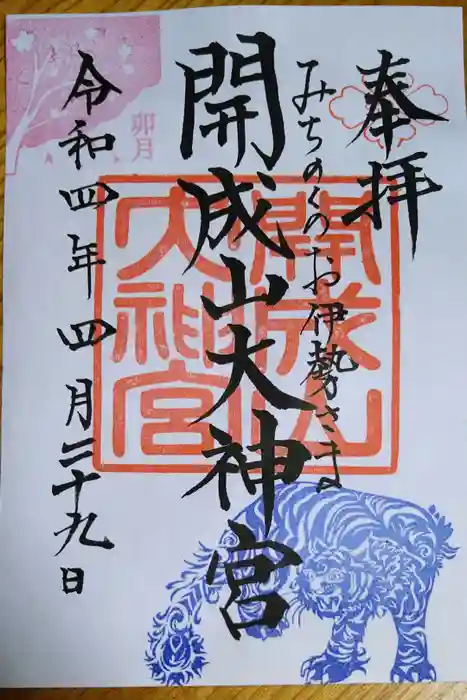 奉拝
みちのくのお伊勢さま
開成山大神宮
開成山
大神宮
令和四年四月二十九日
卯月